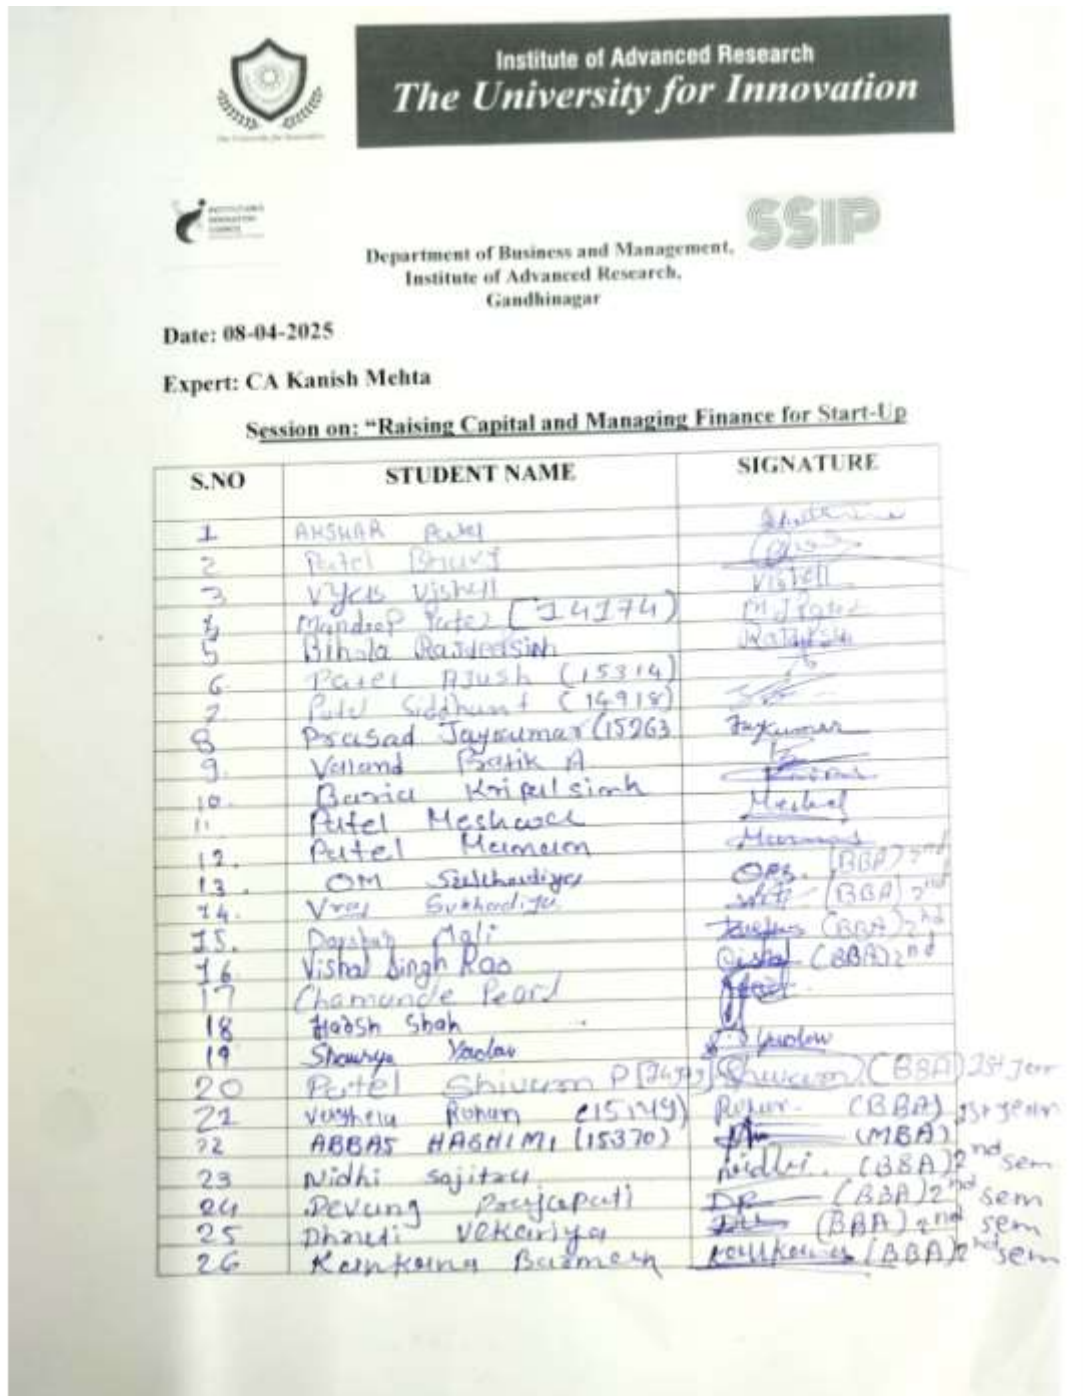 Institute of Advanced Research
The University for Innovation
The University for Innovation
INSTITUTION'S
INNOVATION
COUNCIL
SSIP
Department of Business and Management,
Institute of Advanced Research,
Gandhinagar
Date: 08-04-2025
Expert: CA Kanish Mehta
Session on: “Raising Capital and Managing Finance for Start-Up
S.NO STUDENT NAME SIGNATURE
1 AKSHAR Patel
2 Patel
3 Vyas Vishell Vishell
4 Mandeep Patel [14174)
5 Bihola
6. Patel Ajush (15314)
7. Patel Siddhant (14918)
8 Prasad Jaykumar (15263 Jaykumar
9. Valand Pratik A
10. Baria Kripalsinh
11. Patel Meshwa
12. Patel
13. OM (BBA) 2nd
14. Vraj Sukhadiya (BBA) 2nd
15. Darshan Mali (BBA) 2nd
16 Vishal Singh Rao Vishal (BBA) 2nd
17 Chamunde Pearl
18 Harsh Shah
19 Shourya Yadav
20 Patel Shivam P Shivam (BBA) 1st
21 Rohan (15149) Rohan. (BBA) 1st year
22 ABBAS HASHIMI (15370) (MBA)
23 Nidhi Sojitra Nidhi. (BBA) 2nd sem
24 Devang Prajapati DP (BBA) 2nd sem
25 Dhruti Vekariya (BBA) 2nd sem
26 (BBA) 2nd sem